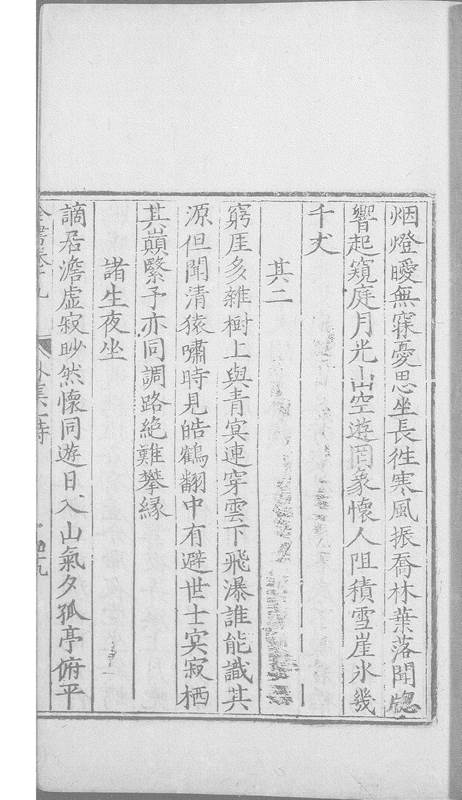 烟燈曖無寐憂思坐長徃寒風振喬林葉落聞牕
響起窺庭月光山空遊罔象懷人阻積雪崖氷幾
千丈
其二
窮崖多雜樹上與青㝠連穿雲下飛瀑誰能識其
源但聞清猿嘯時見皓鶴翻中有避世士㝠寂栖
其巔繄予亦同調路絶難攀縁
諸生夜坐
謫居澹虚寂眇然懷同遊日入山氣夕孤亭俯平
外集 詩